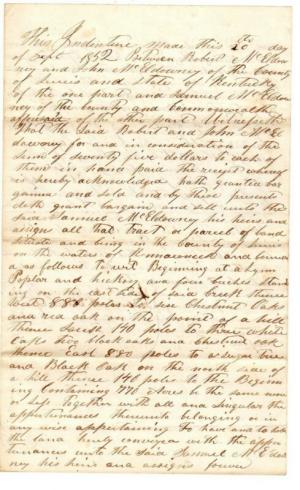 This Indenture made this 20th day
of Sept 1852 Between Robert McEldow
ney and John McEldowney of the County
of Lewis and State of Kentucky
of the one part and Samuel McEldow
ney of the County and Commonwealth
aforesaid of the other part Witnesseth
That the said Robert and John McEl
downey for and in consideration of the
sum of seventy five dollars to each of
them in hand paid the receipt whereof
is hereby acknowledged hath granted bar
gained and sold and by these presents
doth grant bargain & sell unto the
said Samuel McEldowney his heirs and
assigns all that tract or parcel of land
situate and being in the County of Lewis
on the waters of Kinnconick and bound
d as follows to wit Beginning at a Lynn
Poplar and hickory and four birches stand
ing on the east side of said creek thence
West 880 poles to Chestnut Oaks
and red oak on the point of a
thence 140 poles to three white
oaks two black oaks and Chestnut oak
thence East 880 poles to a sugar tree
and Black Oak on the north side of
a hill thence 140 poles to the Begin
ing Containing 770 Acres be the same more
or less together with all and singular the
appurtenances thereunto belonging or in
any wise appertaining To have and to hold
the land hereby conveyed with the appur
tenances unto the said Samuel McEldow
ney his heirs and assigns forever